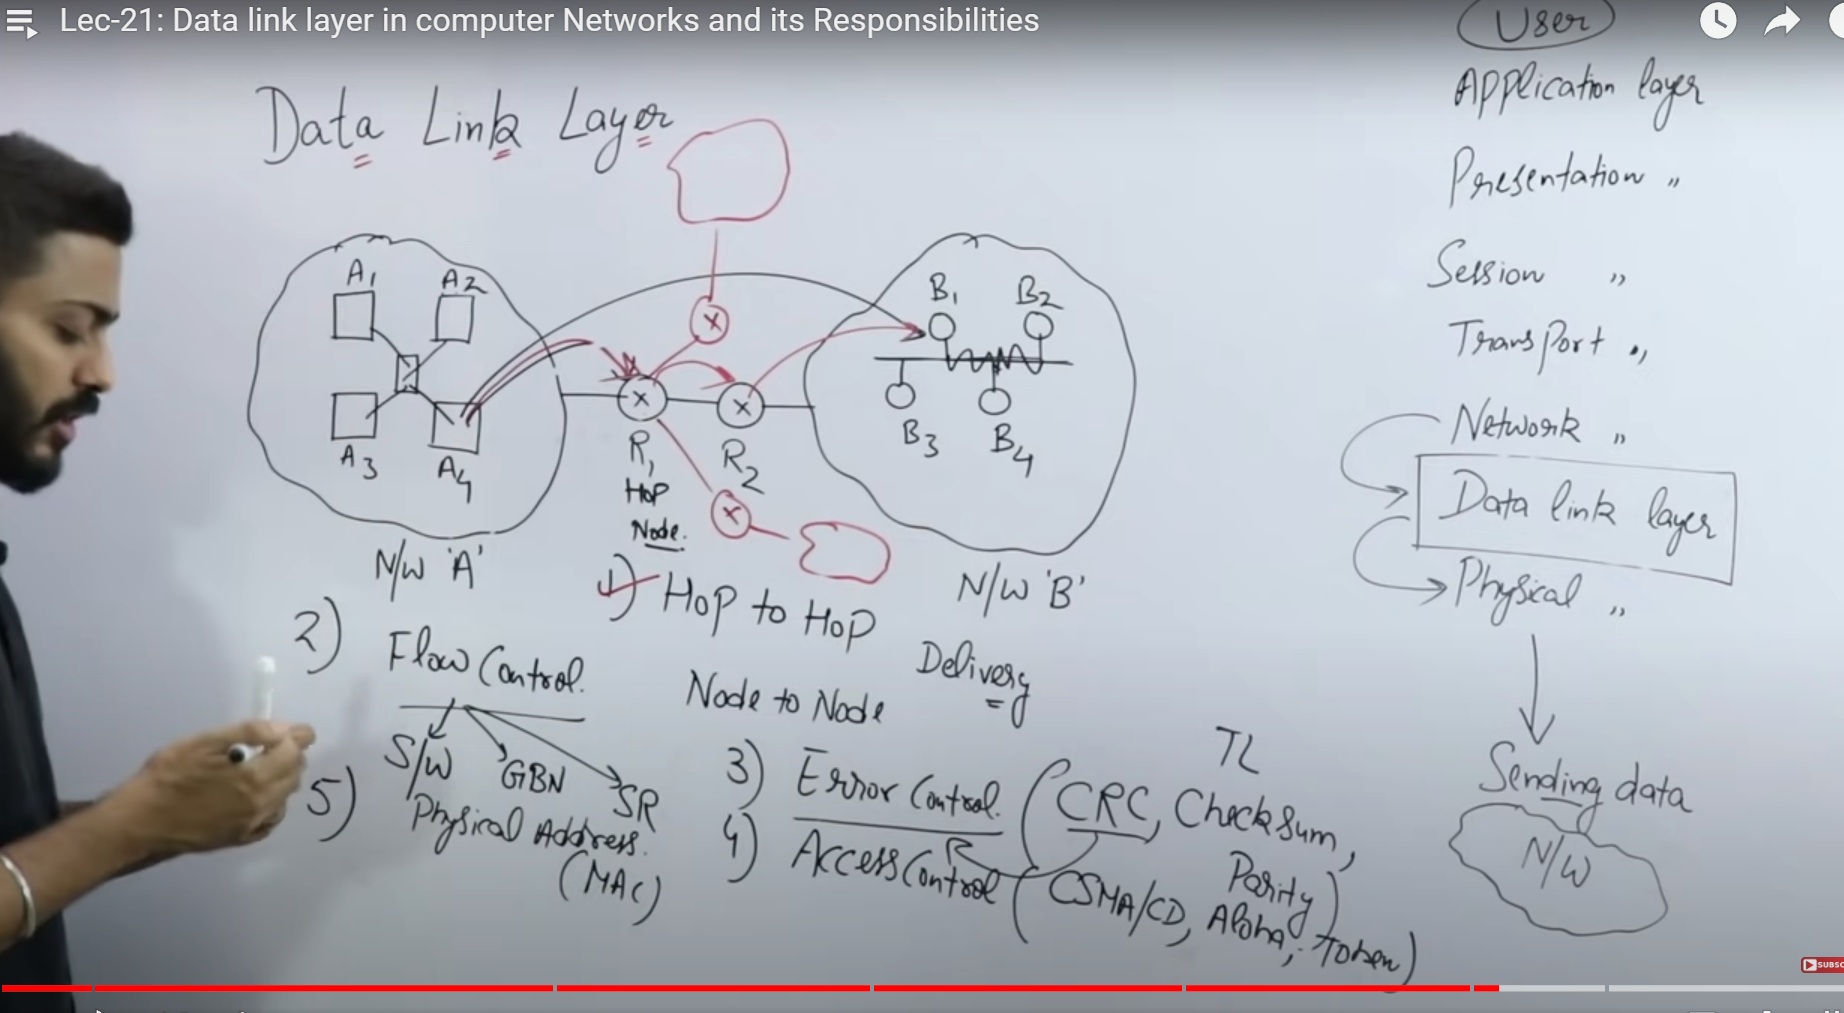 Lec-21: Data link layer in computer Networks and its Responsibilities
Data Link Layer
A1
A2
A3
A4
N/W 'A'
R1
Hop
Node.
R2
B1
B2
B3
B4
N/W 'B'
1) Hop to Hop
Delivery
Node to Node
2) Flow Control.
S/W
GBN
SR
3) Error Control. (CRC, Checksum,
Parity)
TL
4) Access Control (CSMA/CD, Aloha, Token)
5) Physical Address.
(MAC)
User
Application layer
Presentation "
Session "
Transport "
Network "
Data link layer
Physical "
Sending data
N/W
SUBSC